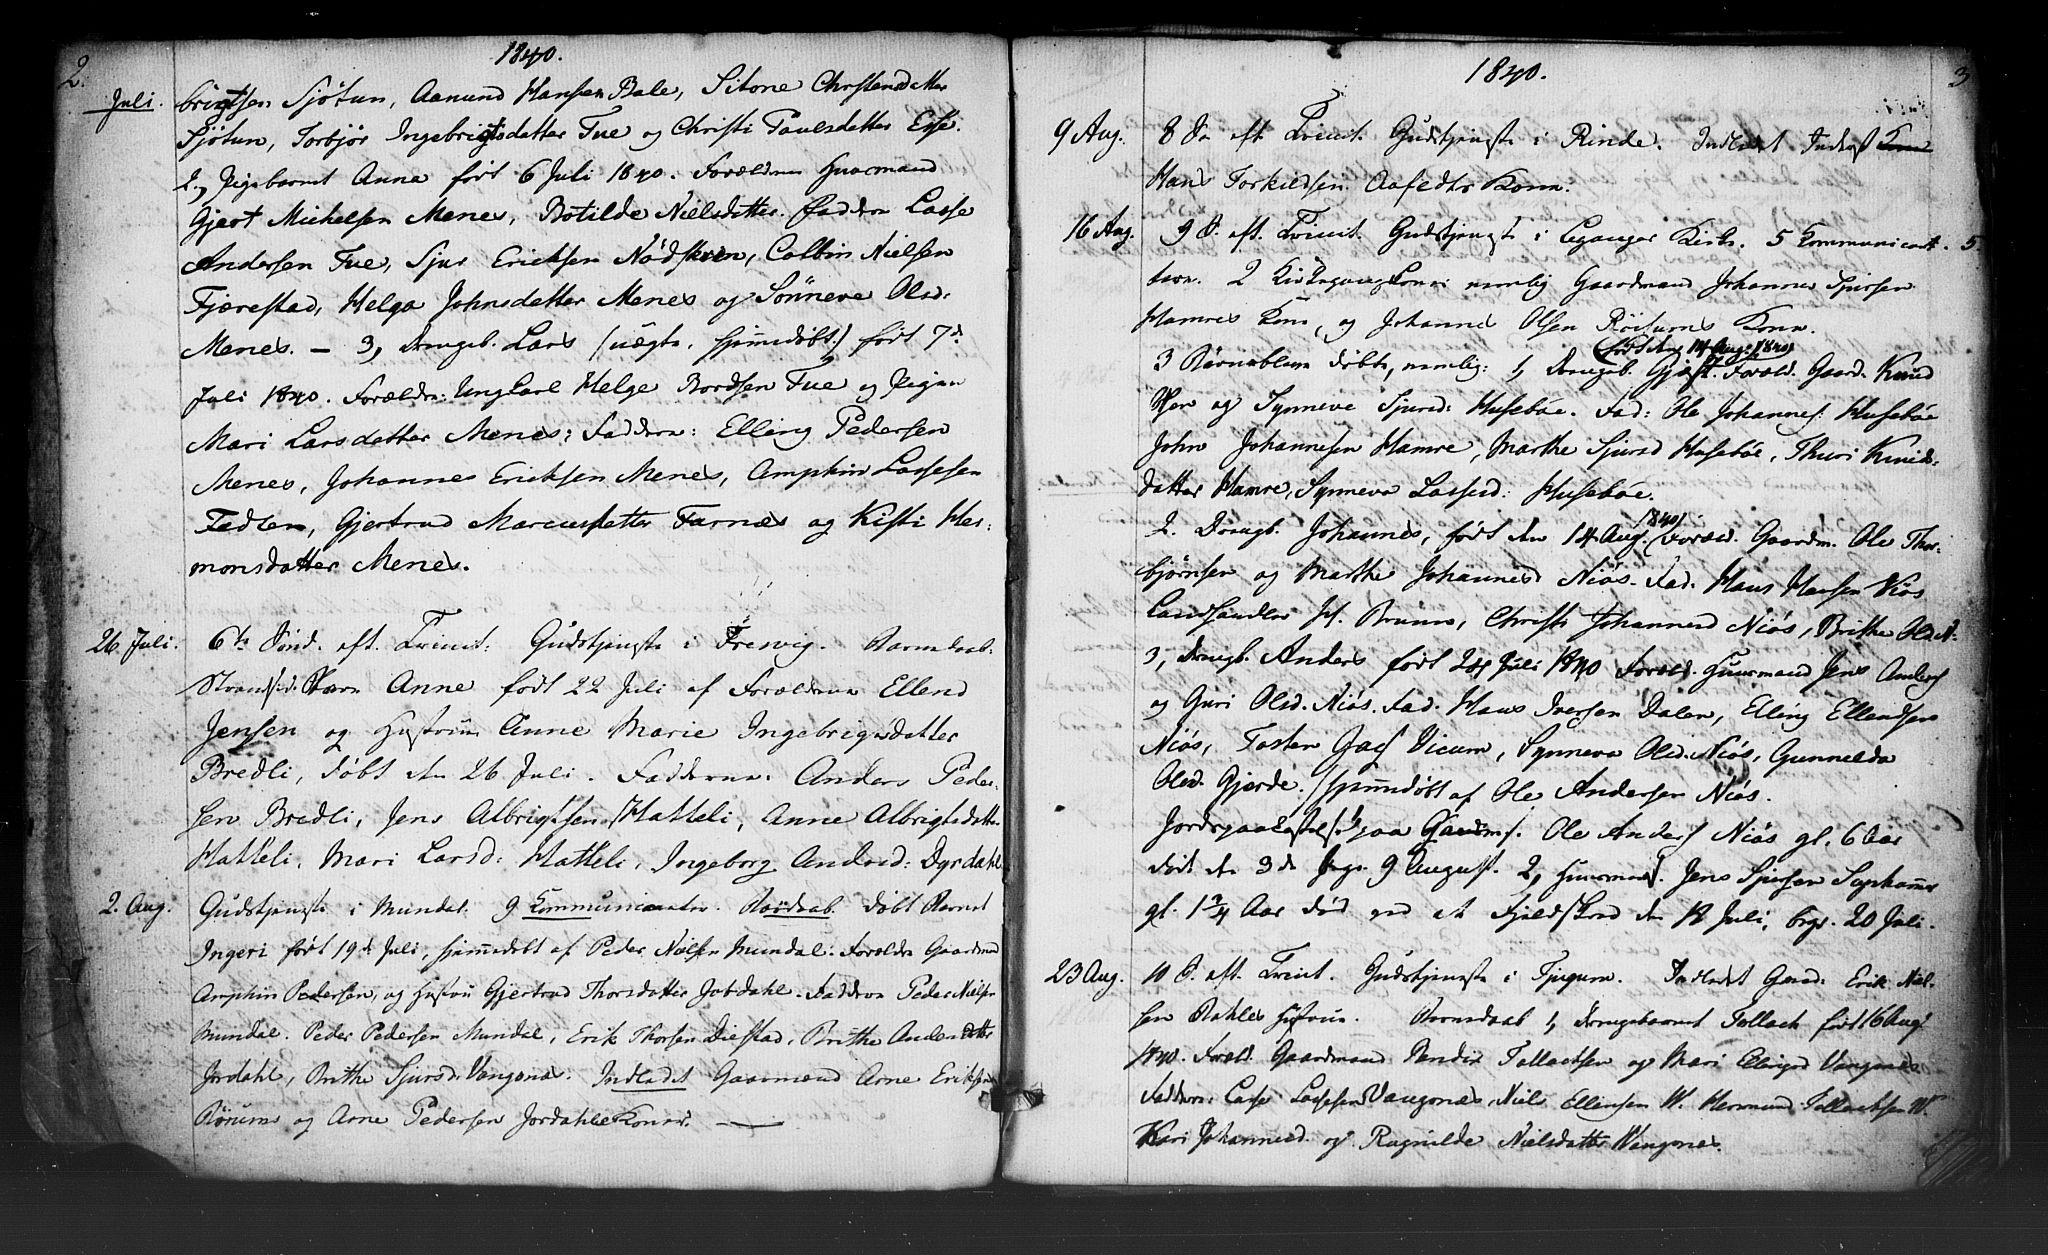 2.
1840.
Juli. brigtsen Sjötun, Aamund Hansen Bale, Sitone Christensdatter
Sjötun, Torbjør Ingebrigtsdatter Tue og Christi Paulsdatter Esse.
2, Pigebarnet Anna født 6 Juli 1840. Forældre Huusmand
Gjert Michelsen Menes, Botilde Nielsdatter. Faddere Lasse
Andersen Tue, Sjur Ericksen Nödskven, Colbin Nielsen
Fjærestad, Helga Johnsdatter Menes og Sönneve Olsd:
Menes. — 3, Drengeb. Lars (uægte, hjemmedøbt) født 7de
Juli 1840. Forældre: Ungkarl Helge Bordsen Tue og Pigen
Mari Larsdatter Menes; Faddere: Elling Pedersen
Menes, Johannes Ericksen Menes, Amphin Lassesen
Fedsen, Gjertrud Marcusdatter Farnæs og Kisti Her-
monsdatter Menes.
26 Juli. 6te Sønd. eft. Trinit: Gudstjeneste i Tresvig. Barnedaab:
Strandsid. Barn Anne født 22 Juli af Forældrene Ellend
Jensen og Hustrue Anne Marie Ingebrigtsdatter
Bredli, døbt den 26 Juli. Fadderne: Anders Peder-
sen Bredli, Jens Albrigtsen Hatteli, Anne Albrigtsdatter
Hatteli, Mari Larsd: Hatteli, Ingeborg Andersd: Dyrdahl.
2. Aug. Gudstjeneste i Mundal. 9 Communicanter. døbt Barnet
Ingeri født 19de Juli, hjemmedøbt af Peder Nielsen Mundal: Forældre Gaardmand
Amphin Pedersen, og Hustrue Gjertrud Thorsdatter Jordahl. Faddere Peder Nielsen
Mundal. Peder Pedersen Mundal, Erik Thorsen Diestad, Brithe Andersdatter
Jordahl, Brithe Sjursd. Vangsnæs. Indledet Gaarmænd Arne Eriksen
Rörums og Arne Pedersen Jordahls Koner. —
1840.
3
9 Aug. 8 Sø eft. Trinit. Gudstjeneste i Rinde. Indledet Inderst Kone
Hans Torkildsen Aafedts Kone.
16 Aug. 9 S. eft. Trinit. Gudstjeneste i Leganger Kirke. 5 Kommunican- 5.
ter. 2 Kirkegangskoner nemlig Gaardmand Johannes Sjursen
Hamres Kone, og Johannes Olsen Röitums Kone.
(født den 14 Aug. 1840)
3 Børneblevne døbte, nemlig: 1, Drengeb. Gjøst. Foræld. Gaard. Knud
Iver og Synneve Sjursd: Husebøe. Fad: Ole Johannes: Husebøe
John Johannesen Hamre, Marthe Sjursd Husebøe, Thuri Knuds-
datter Hamre, Synneva Lassesd: Husebøe.
1840)
2. Drengb. Johannes, født den 14 Aug. (Foræld. Gaardm. Ole Thor-
bjørnsen og Marthe Johannesd Niøs. Fad: Hans Hansen Niøs
Landhandler H. Bruun, Christi Johannesd Niøs, Brithe Olsd N.
3, Drengb. Anders født 24 Juli 1840 Foræld. Huusmand Jens Anders
og Guri Olsd. Niøs. Fad. Hans Iversen Dalen, Elling Ellendsen
Niøs, Tosten Jacs Vicum, Synneva Olsd: Niøs, Gunnelda
Olsd. Gjerde. Hjemmedøbt af Ole Andersen Niøs.
Jordspaakastelse 1, paa Gaardms. Ole Anders Niøs gl. 6 Aar
død den 3de begr. 9 August. 2, Huusmands. Jens Sjursen
gl. 1 3/4 Aar død ved et Fjeldskred den 18 Juli, begr. 20 Juli.
23 Aug. 10 S. eft. Trinit. Gudstjeneste i Tjugum. Indledet Gaard: Erik Niel-
sen Hustrue. Barnedaab 1, Drengebarnet Tollach født 16 Aug:
1840. Foræld. Gaardmand Tollachsen og Mari Ellingsd Vangsnes
Faddere: Lasse Lassesen Vangsnæs, Niels Ellensen W. Hermund Tollachsen W.
Kari Johannesd. og Ragnilde Nielsdatter Wangsnes.